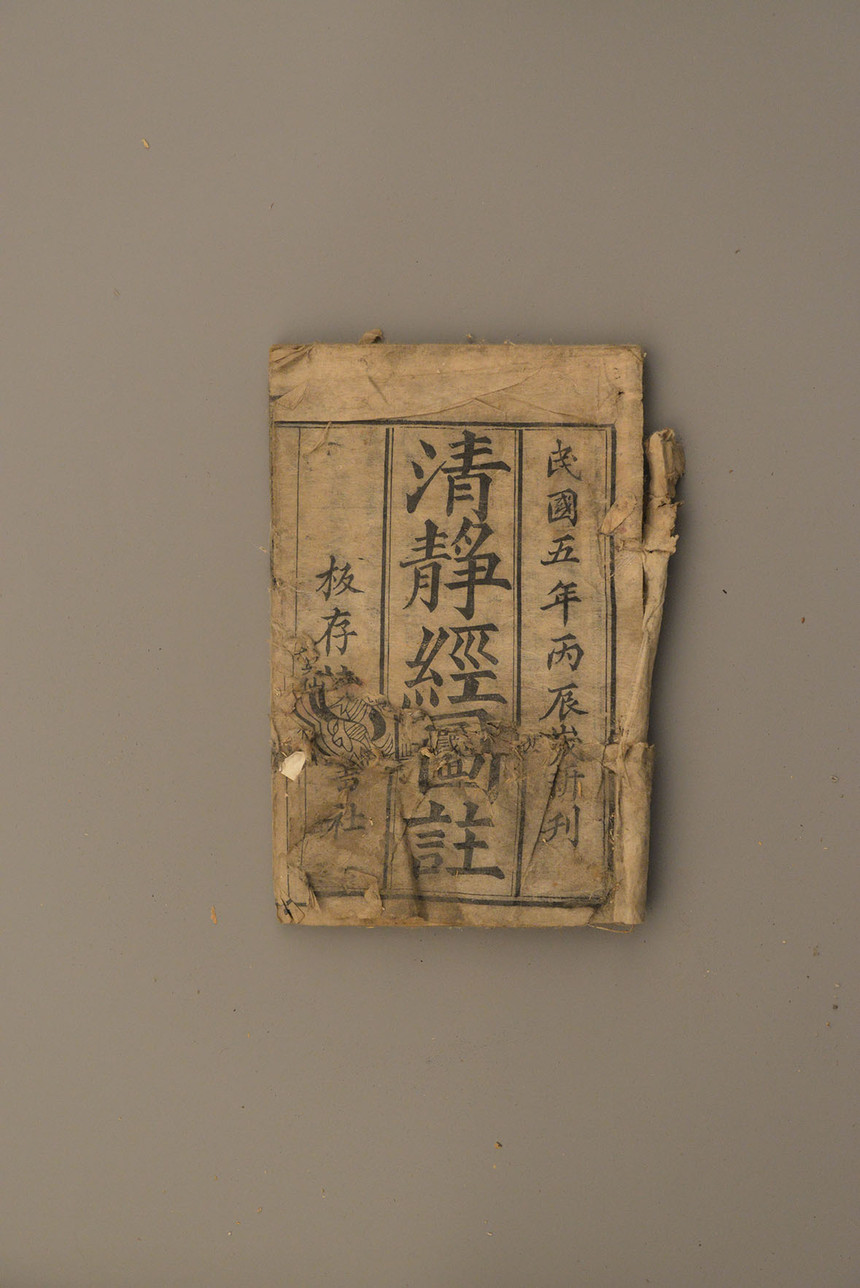 民國五年丙辰歲新刊
清靜經圖註
板存 吉社